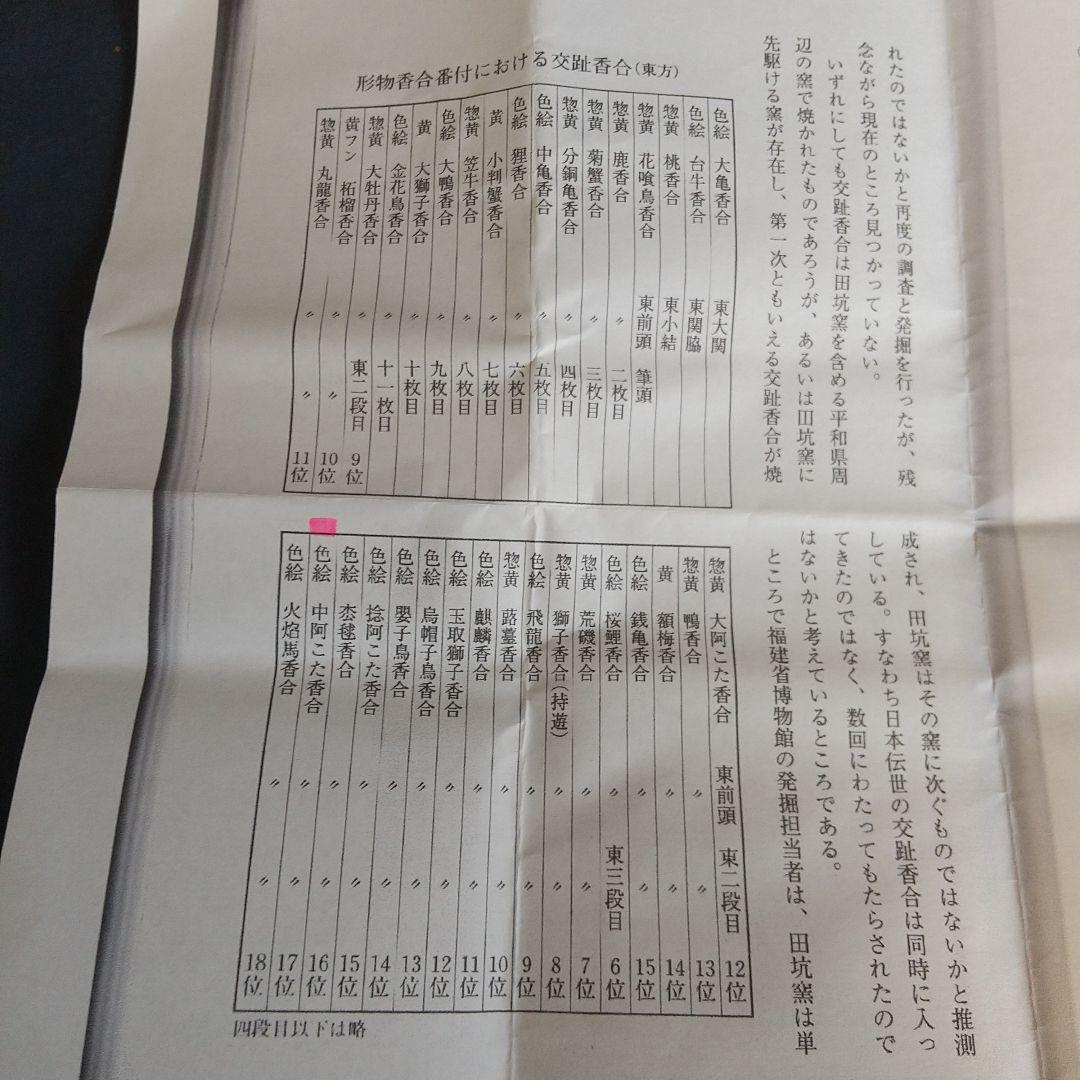 れたのではないかと再度の調査と発掘を行ったが、残
念ながら現在のところ見つかっていない。
いずれにしても交趾香合は田坑窯を含める平和県周
辺の窯で焼かれたものであろうが、あるいは田坑窯に
先駆ける窯が存在し、第一次ともいえる交趾香合が焼
形物香合番付における交趾香合(東方)
色絵 大亀香合 東大関
色絵 台牛香合 東関脇
惣黄 桃香合 東小結
惣黄 花喰鳥香合 東前頭 筆頭
惣黄 鹿香合 〃 二枚目
惣黄 菊蟹香合 〃 三枚目
惣黄 分銅亀香合 〃 四枚目
色絵 中亀香合 〃 五枚目
色絵 狸香合 〃 六枚目
黄 小判蟹香合 〃 七枚目
惣黄 笠牛香合 〃 八枚目
色絵 大鴨香合 〃 九枚目
黄 大獅子香合 〃 十枚目
色絵 金花鳥香合 〃 十一枚目
惣黄 大牡丹香合 〃 東二段目 9位
黄フン 柘榴香合 〃 〃 10位
惣黄 丸龍香合 〃 〃 11位
成され、田坑窯はその窯に次ぐものではないかと推測
している。すなわち日本伝世の交趾香合は同時に入っ
てきたのではなく、数回にわたってもたらされたので
はないかと考えているところである。
ところで福建省博物館の発掘担当者は、田坑窯は単
惣黄 大阿こた香合 東前頭 東二段目 12位
惣黄 鴨香合 〃 〃 13位
黄 額梅香合 〃 〃 14位
色絵 銭亀香合 〃 〃 15位
色絵 桜鯉香合 〃 東三段目 6位
惣黄 荒磯香合 〃 〃 7位
惣黄 獅子香合(持遊) 〃 〃 8位
色絵 飛龍香合 〃 〃 9位
惣黄 蕗薹香合 〃 〃 10位
色絵 麒麟香合 〃 〃 11位
色絵 玉取獅子香合 〃 〃 12位
色絵 烏帽子鳥香合 〃 〃 13位
色絵 嬰子鳥香合 〃 〃 14位
色絵 捻阿こた香合 〃 〃 15位
色絵 毬香合 〃 〃 16位
色絵 中阿こた香合 〃 〃 17位
色絵 火焰馬香合 〃 〃 18位
四段目以下は略